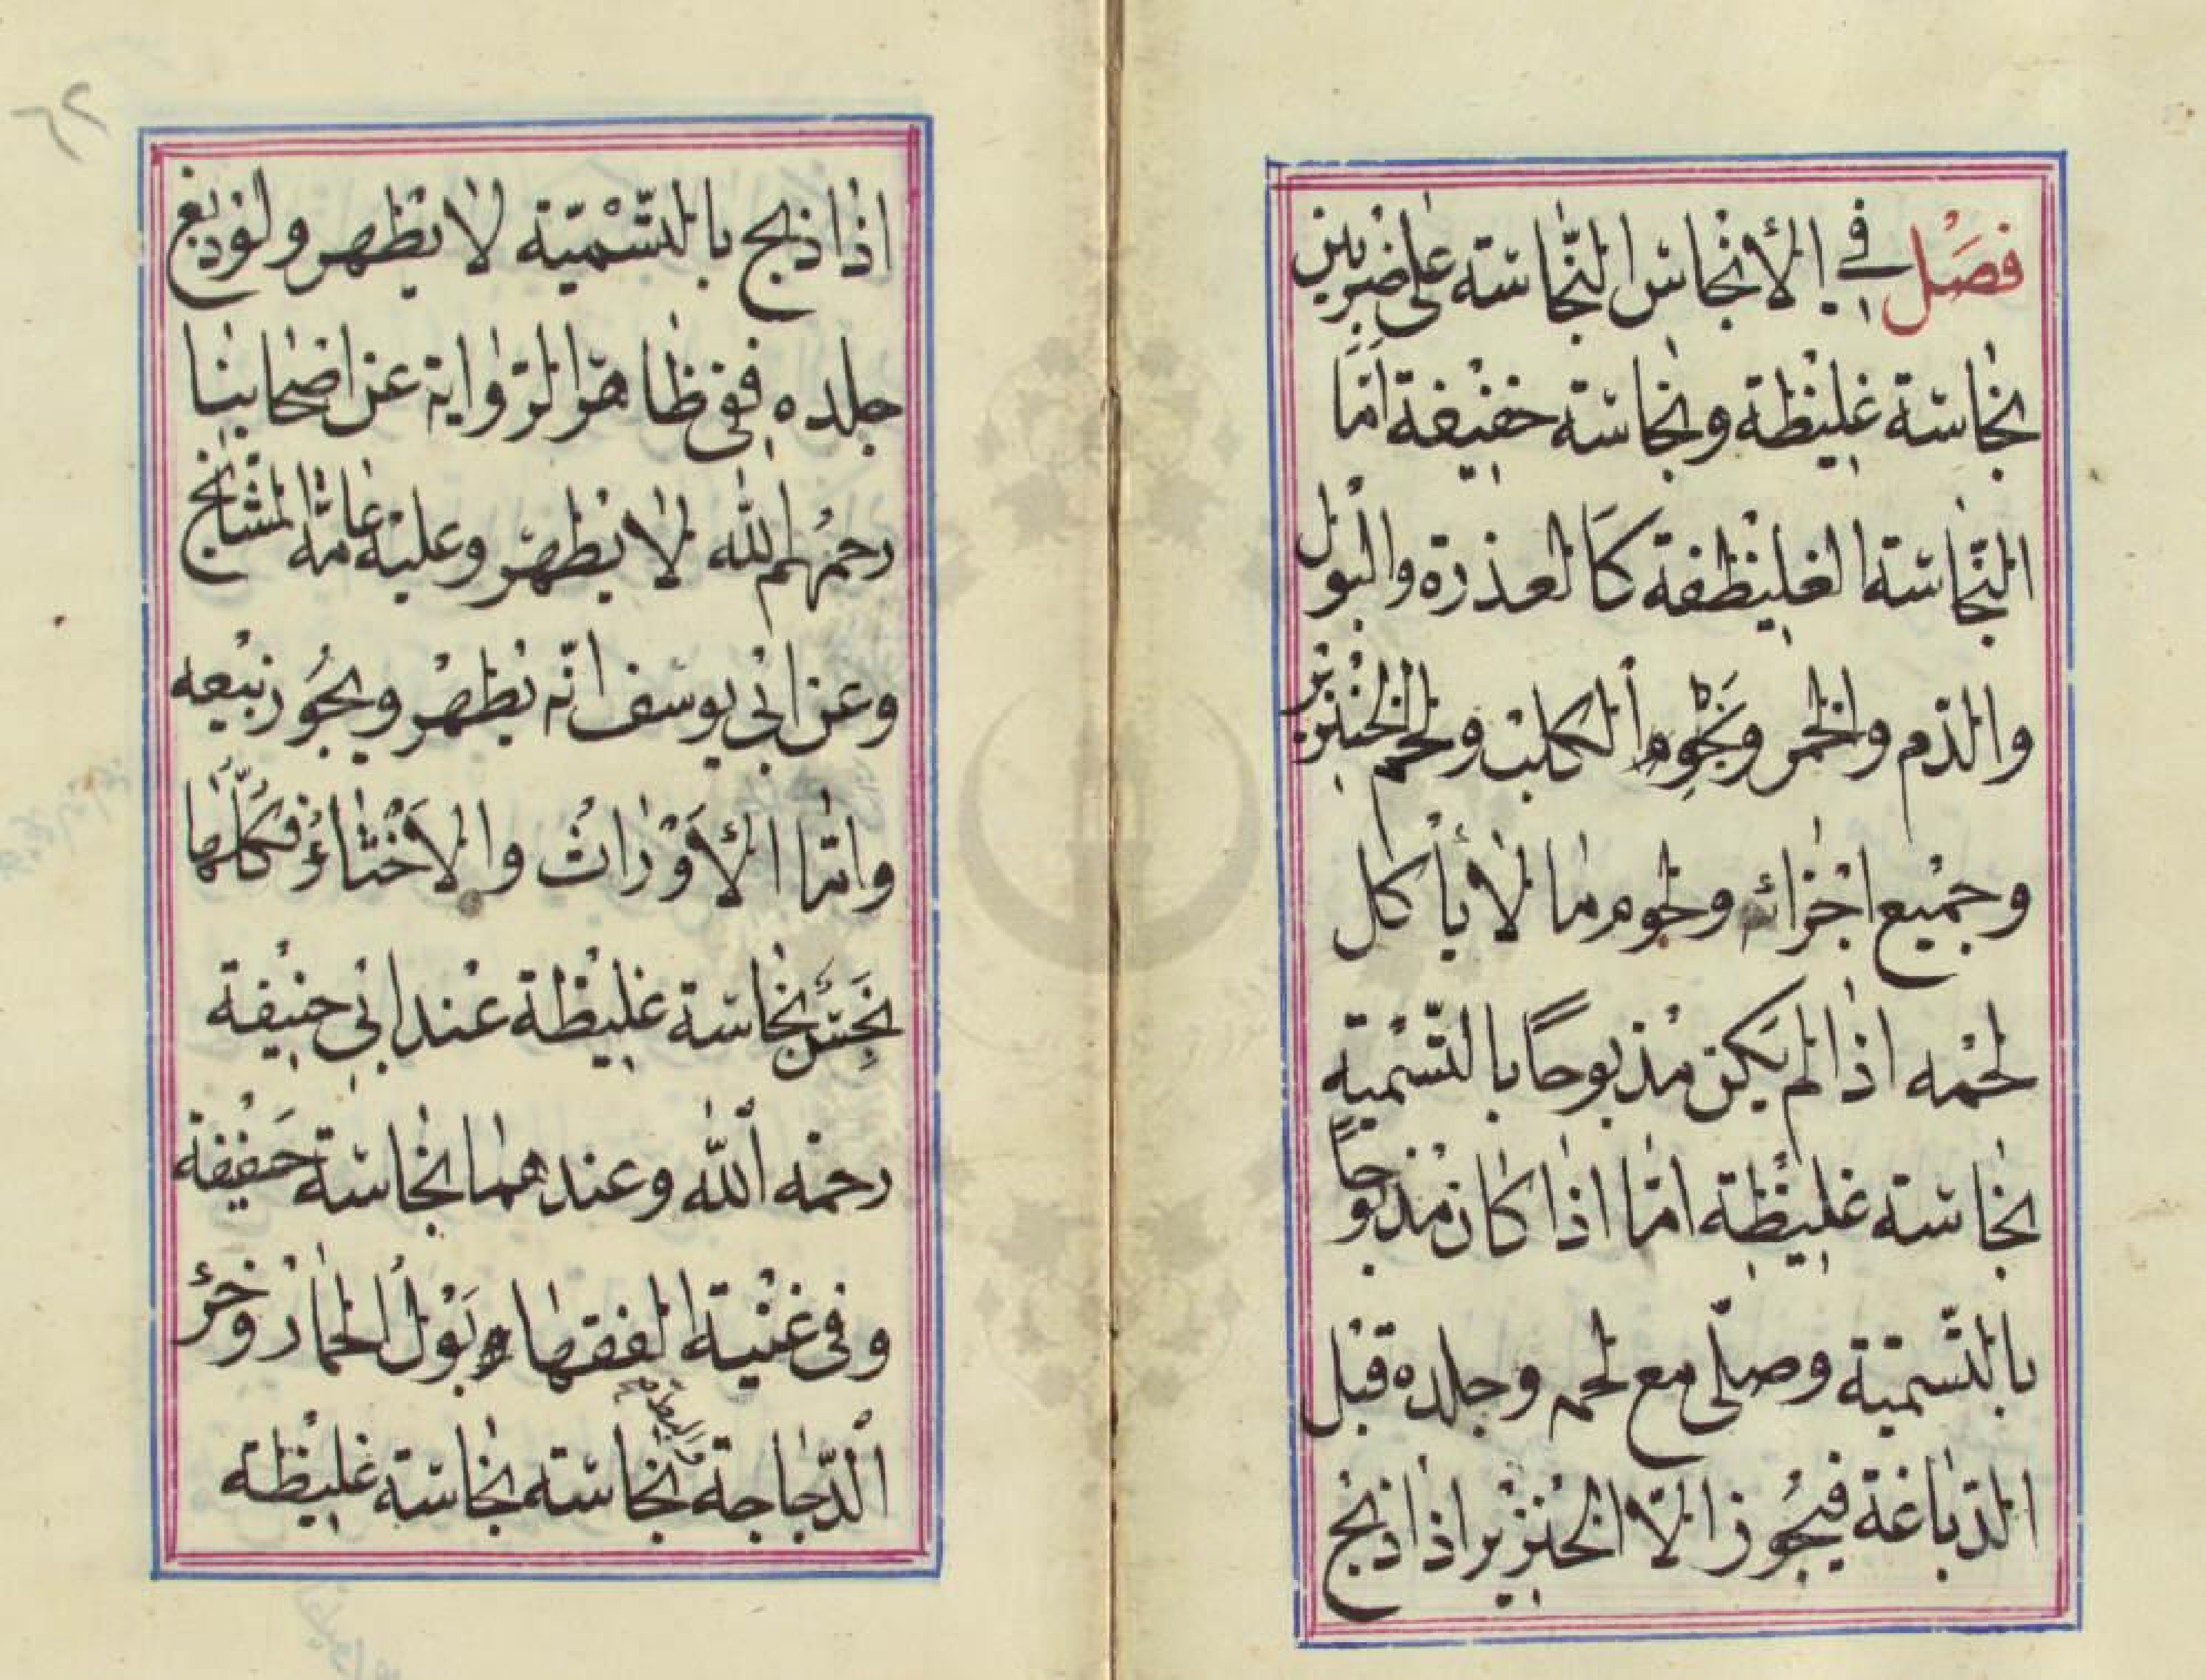 فصل في الأنجاس النجاسة على ضربين
نجاسة غليظة ونجاسة خفيفة اما
النجاسة الغليظفة كالعذرة والبول
والدم والخمر ونجوم الكلب ولحم الخنزير
وجميع اجزائه ولحوم ما لا يأكل
لحمه اذا لم يكن مذبوحا بالتسمية
نجاسة غليظة اما اذا كان مذبوحا
بالتسمية وصلى مع لحمه وجلده قبل
الدباغة فيجوز الا الخنزير اذا ذبح
اذا ذبح بالتسمية لا يطهر ولو دبغ
جلده ففى ظاهر الرواية عن اصحابنا
رحمهم الله لا يطهر وعليه عامة المشايخ
وعن ابى يوسف انه يطهر ويجوز بيعه
واما الأوراث والاخثاء فكلها
نجس نجاسة غليظة عند ابى حنيفة
رحمه الله وعندهما نجاسة خفيفة
وفى غنية الفقهاء بول الحمار وخرؤ
الدجاجة نجاسته نجاسة غليظة